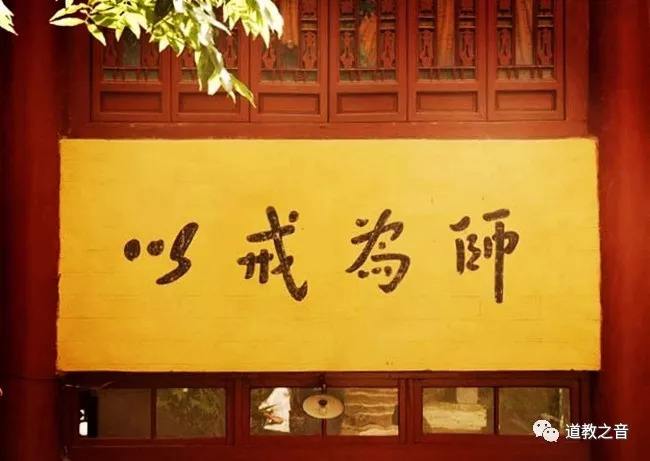 以戒為師
道教之音